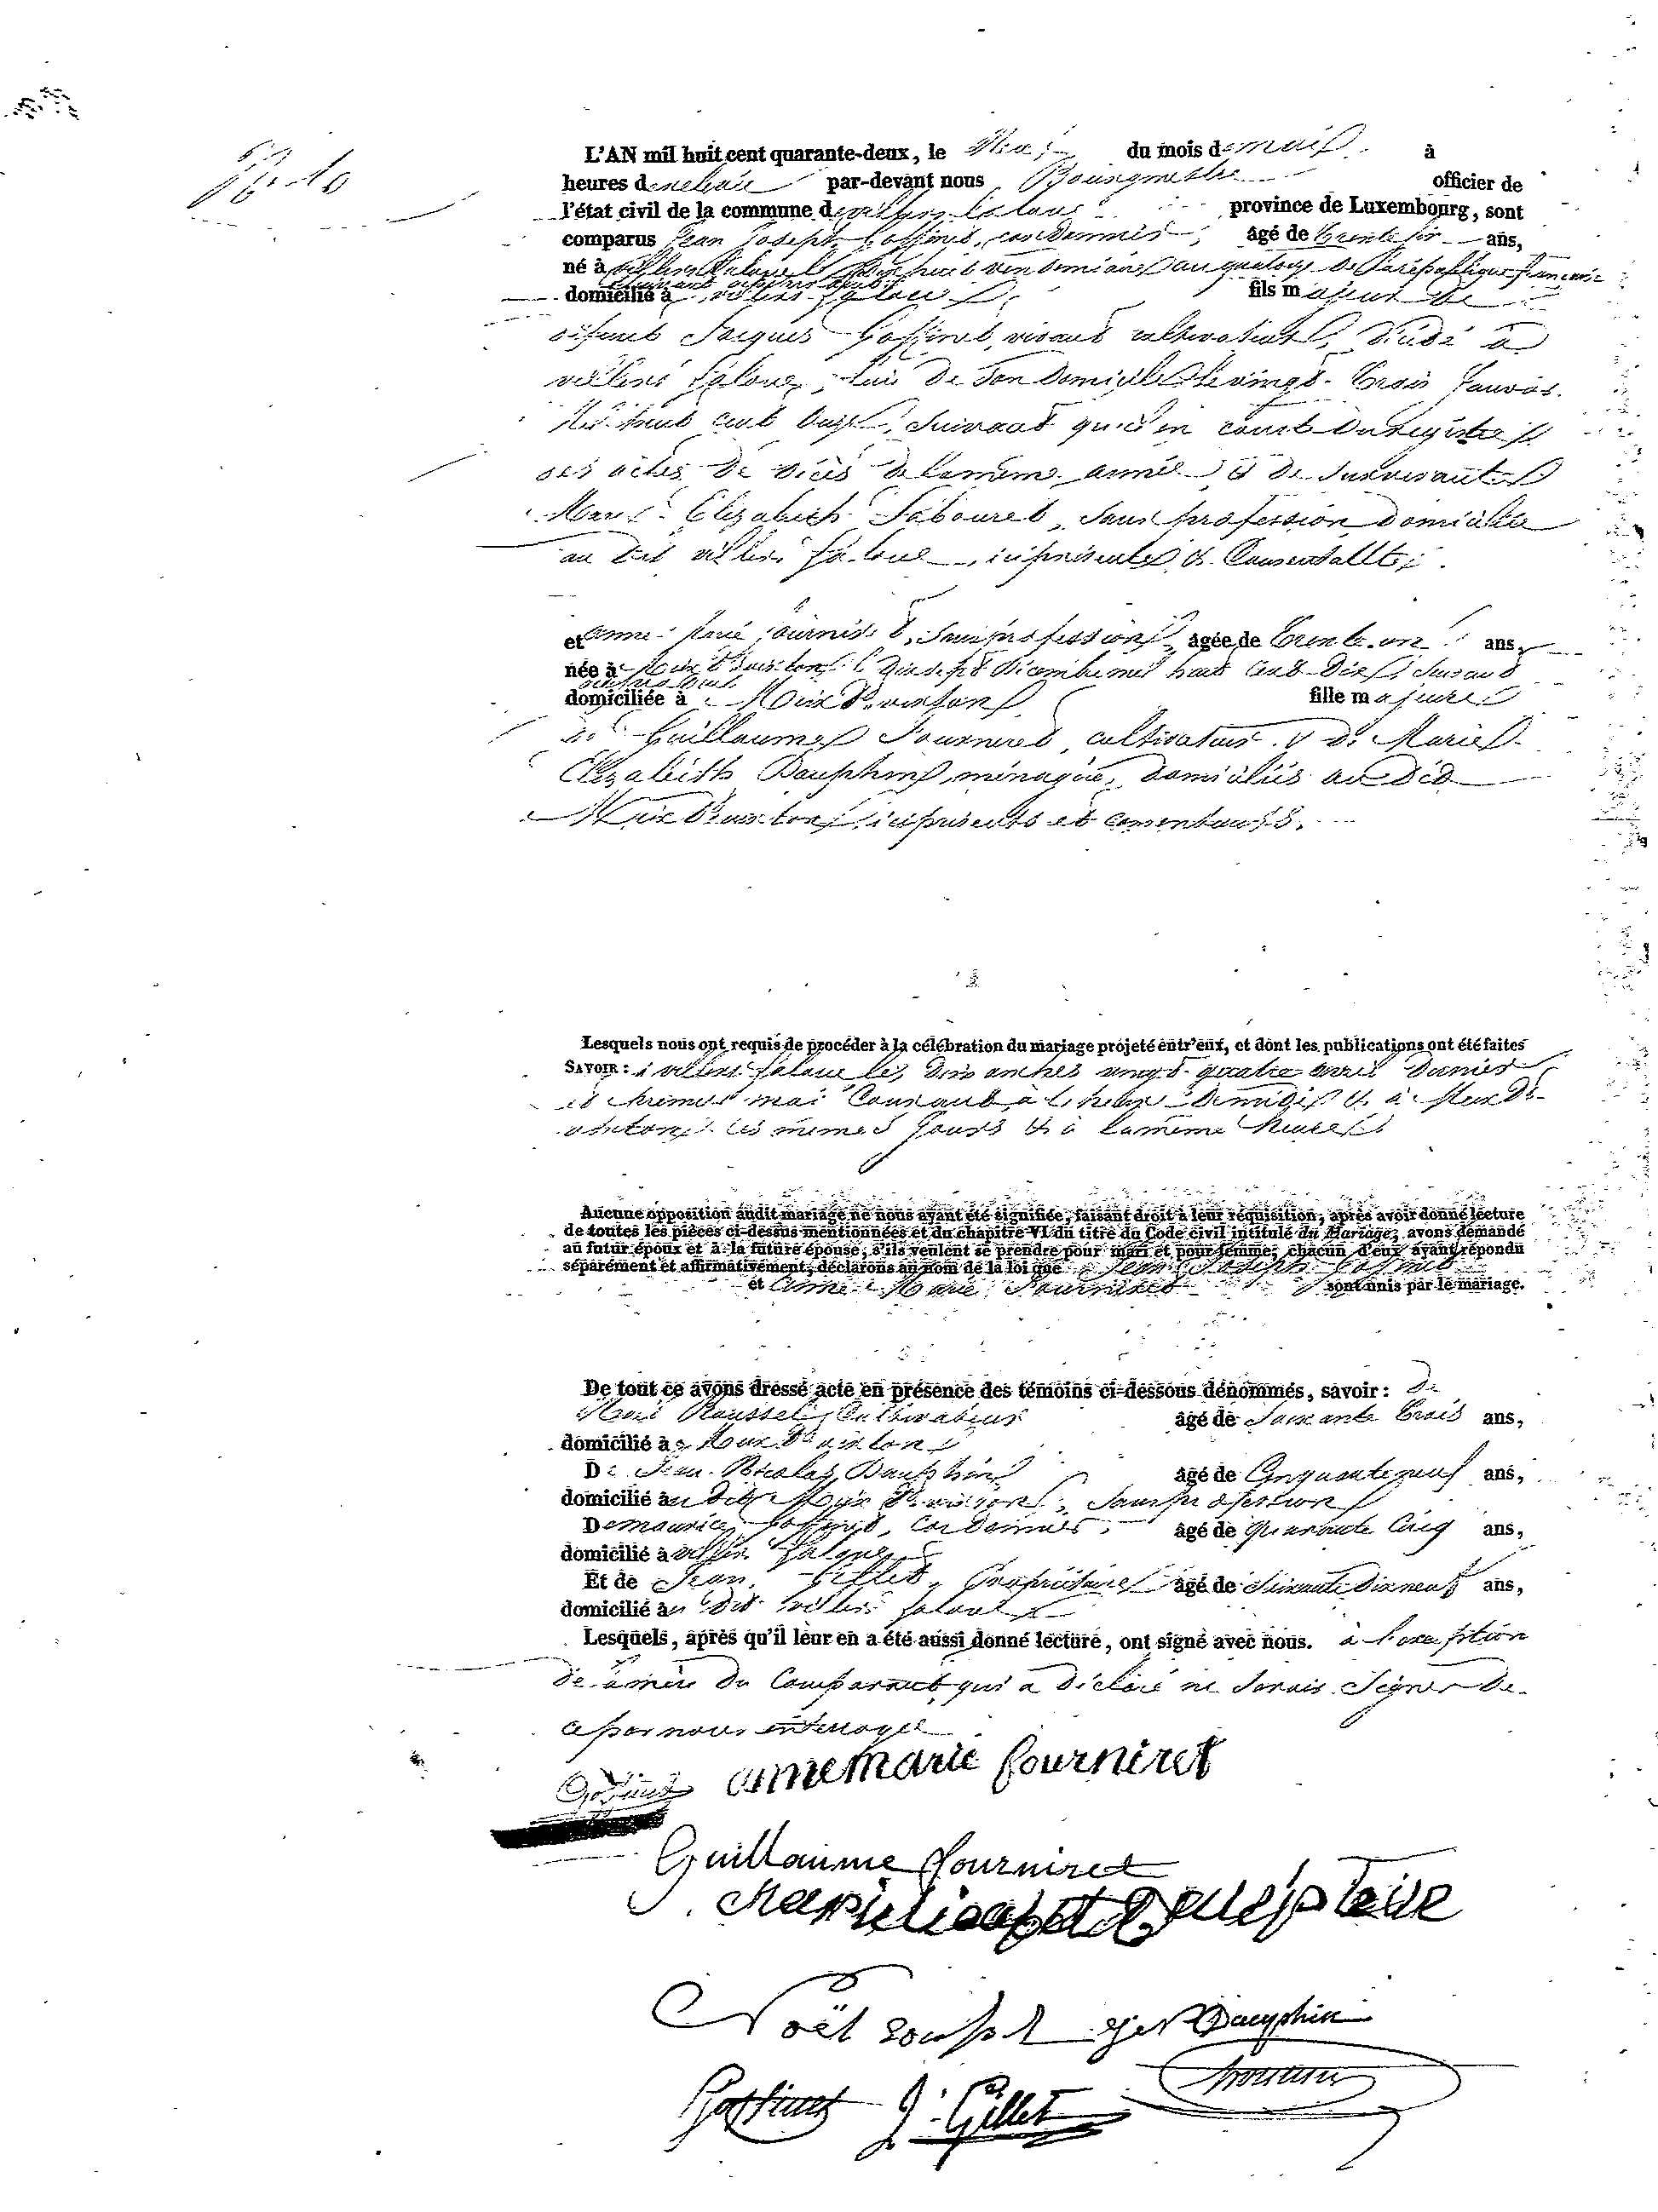 N° 10
L'AN mil huit cent quarante-deux, le du mois de mai à
heures de par-devant nous Bourgmestre officier de
l'état civil de la commune de villers la loue province de Luxembourg, sont
comparus Jean Joseph Goffinet, cordonnier, âgé de trente six ans,
né à villers la loue le huit vendemiaire an quatorze de la république francaise
domicilié à villers la loue fils majeur de
défunt Jacques Goffinet, vivant cultivateur, décédé à
villers la loue, lieu de son domicile le vingt-trois
mil huit cent onze, suivant qu'il en conste du registre
des actes de décès de la meme année & de survivante
Marie Elizabeth Tabouret, sans profession domiciliée
au dit villers la loue, ici présente & consentante.
et anne marie fourniret, sans profession, âgée de trente-un ans,
née à Meix dt virton le dix sept décembre mil huit cent dix, suivant
domiciliée à Meix dt virton fille majeure
de Guillaume Fourniret, cultivateur & de Marie
Elizabeth Dauphin, ménagère, domiciliés au dit
Meix dt virton, ici présents et consentants.
Lesquels nous ont requis de procéder à la célébration du mariage projeté entr'eux, et dont les publications ont été faites
SAVOIR : à villers la loue les dimanches vingt-quatre avril dernier
et premier mai courant à l'heure de midi & à Meix dt
virton les memes jours & à la même heure
Aucune opposition audit mariage ne nous ayant été signifiée, faisant droit à leur réquisition, après avoir donné lecture
de toutes les pièces ci-dessus mentionnées et du chapitre VI du titre du Code civil intitulé du Mariage, avons demandé
au futur époux et à la future épouse, s'ils veulent se prendre pour mari et pour femme; chacun d'eux ayant répondu
séparément et affirmativement, déclarons au nom de la loi que Jean Joseph Goffinet
et Anne Marie Fourniret sont unis par le mariage.
De tout ce avons dressé acte en présence des témoins ci-dessous dénommés, savoir : de
Noël Roussel, Cultivateur âgé de soixante trois ans,
domicilié à Meix dt virton
De Jean Nicolas Dauphin âgé de Cinquante neuf ans,
domicilié au dit Meix dt virton, sans profession
De maurice Goffinet, cordonnier, âgé de quarante Cinq ans,
domicilié à villers la loue
Et de Jean Gillet, Propriétaire âgé de soixante dix neuf ans,
domicilié au dit villers la loue
Lesquels, après qu'il leur en a été aussi donné lecture, ont signé avec nous. à l'exception
de la mère du Comparant qui a déclaré ne savoir signer de
ce par nous interrogée
Goffinet anne marie fourniret
Guillaume fourniret
Noël Dauphin
Goffinet J. Gillet